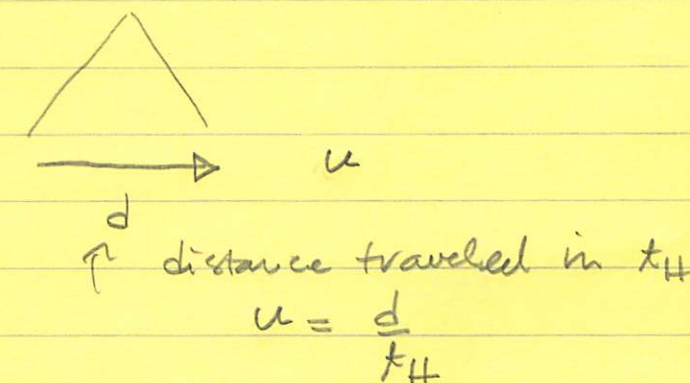 u
d
↑ distance traveled in t_H
u = d/t_H